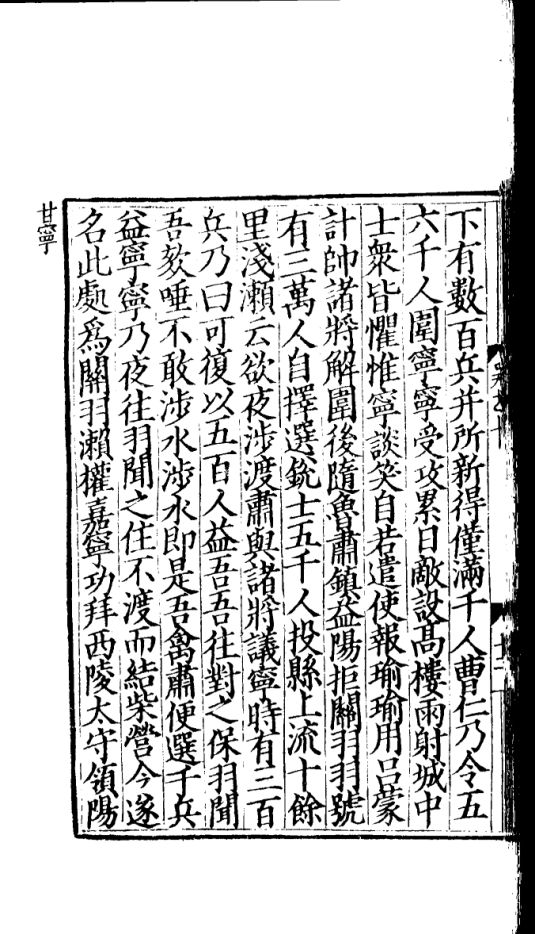 下有數百兵并所新得僅滿千人曹仁乃令五
六千人圍寧寧受攻累日敵設高樓雨射城中
士衆皆懼惟寧談笑自若遣使報瑜瑜用呂蒙
計帥諸將解圍後隨魯肅鎮益陽拒關羽羽號
有三萬人自擇選銳士五千人投縣上流十餘
里淺瀨云欲夜涉渡肅與諸將議寧時有三百
兵乃曰可復以五百人益吾吾往對之保羽聞
吾欬唾不敢涉水涉水即是吾禽肅便選千兵
益寧寧乃夜往羽聞之住不渡而結柴營今遂
名此處爲關羽瀨權嘉寧功拜西陵太守領陽
甘寧